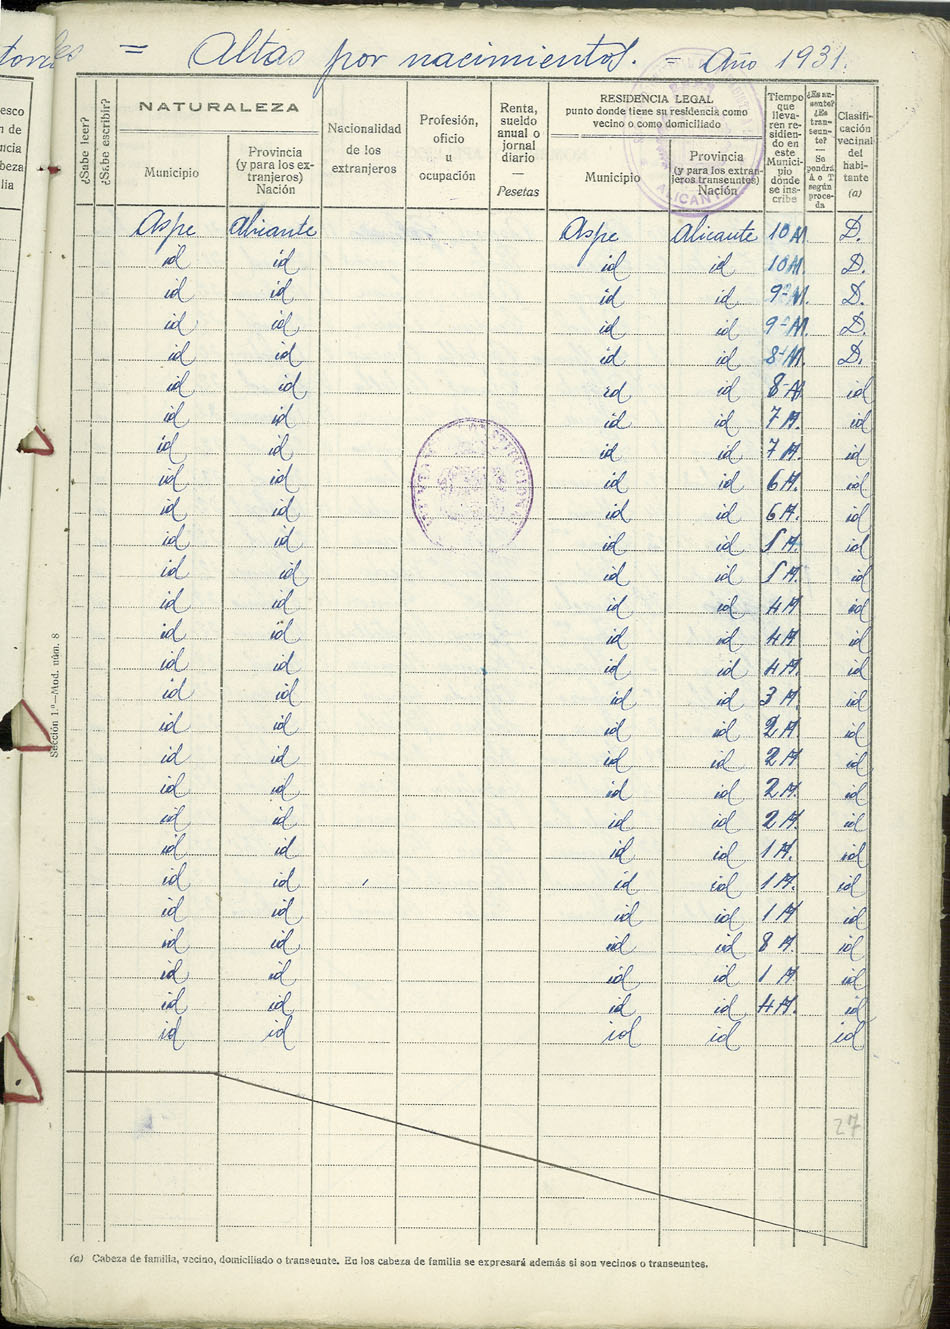 = Altas por nacimientos. = Año 1931.
¿Sabe leer?
¿Sabe escribir?
NATURALEZA
Municipio
Provincia
(y para los ex-
tranjeros)
Nación
Nacionalidad
de los
extranjeros
Profesión,
oficio
u
ocupación
Renta,
sueldo
anual o
jornal
diario
—
Pesetas
RESIDENCIA LEGAL
punto donde tiene su residencia como
vecino o como domiciliado
Municipio
Provincia
(y para los extran-
jeros transeuntes)
Nación
Tiempo
que
lleva-
ren re-
sidien-
do en
este
Munici-
pio
donde
se ins-
cribe
¿Es au-
sente?
¿Es
tran-
seun-
te?
—
Se
pondrá
A o T
según
proce-
da
Clasifi-
cación
vecinal
del
habi-
tante
(a)
ALICANTE
Aspe Alicante Aspe Alicante 10 M D.
id id id id 10 M. D.
id id id id 9- M. D.
id id id id 9- M. D.
id id id id 8- M. D.
id id id id 8- M id
id id id id 7 M. id
id id id id 7 M. id
id id id id 6 M. id
id id id id 6 M. id
id id id id 5 M. id
id id id id 5 M. id
id id id id 4 M id
id id id id 4 M. id
id id id id 4 M. id
id id id id 3 M. id
id id id id 2 M. id
id id id id 2 M id
id id id id 2 M. id
id id id id 2 M. id
id id id id 1 M. id
id id id id 1 M. id
id id id id 1 M id
id id id id 8 M. id
id id id id 1 M id
id id id id 4 M. id
id id id id id
27
Sección 1.ª—Mod. núm. 8
(a) Cabeza de familia, vecino, domiciliado o transeunte. En los cabeza de familia se expresará además si son vecinos o transeuntes.